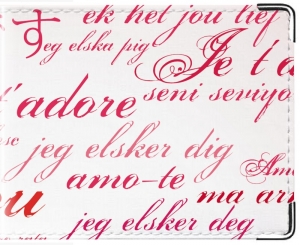 す
ek het jou lief
jeg elska pig
Je t'a
t'adore
seni seviyo
jeg elsker dig
Amo
amo-te
ma ar
ou
jeg elsker deg